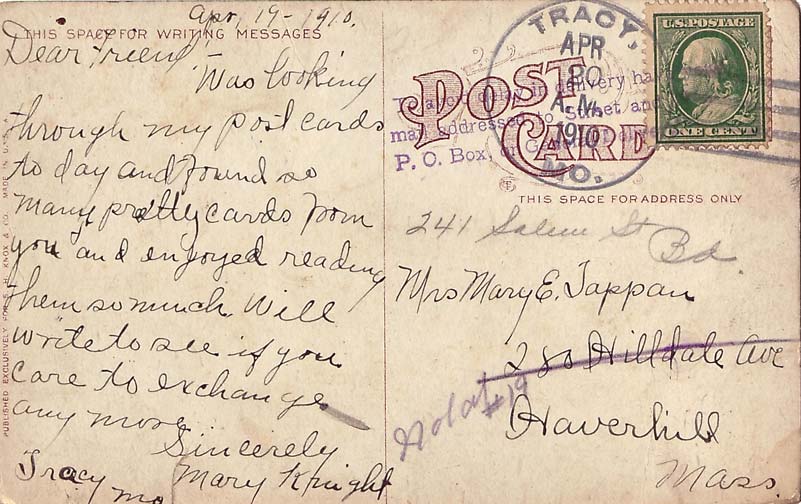 Apr, 19 - 1910.
THIS SPACE FOR WRITING MESSAGES
Dear Friend -
Was looking
through my post cards
to day and found so
many pretty cards from
you and enjoyed reading
them so much. Will
write to see if you
care to exchange
any more.
Sincerely
Mary Knight
Tracy
Mo
PUBLISHED EXCLUSIVELY FOR S. H. KNOX & CO. MADE IN U.S.A.
POST CARD
TRACY,
APR
20
A.M.
1910
MO.
U.S. POSTAGE
ONE CENT
To avoid delay in delivery have
mail addressed to Street and
P. O. Box, or General
THIS SPACE FOR ADDRESS ONLY
241 Salem St
Bd.
Mrs Mary E. Tappan
280 Hilldale Ave
Not at #19
Haverhill
Mass.